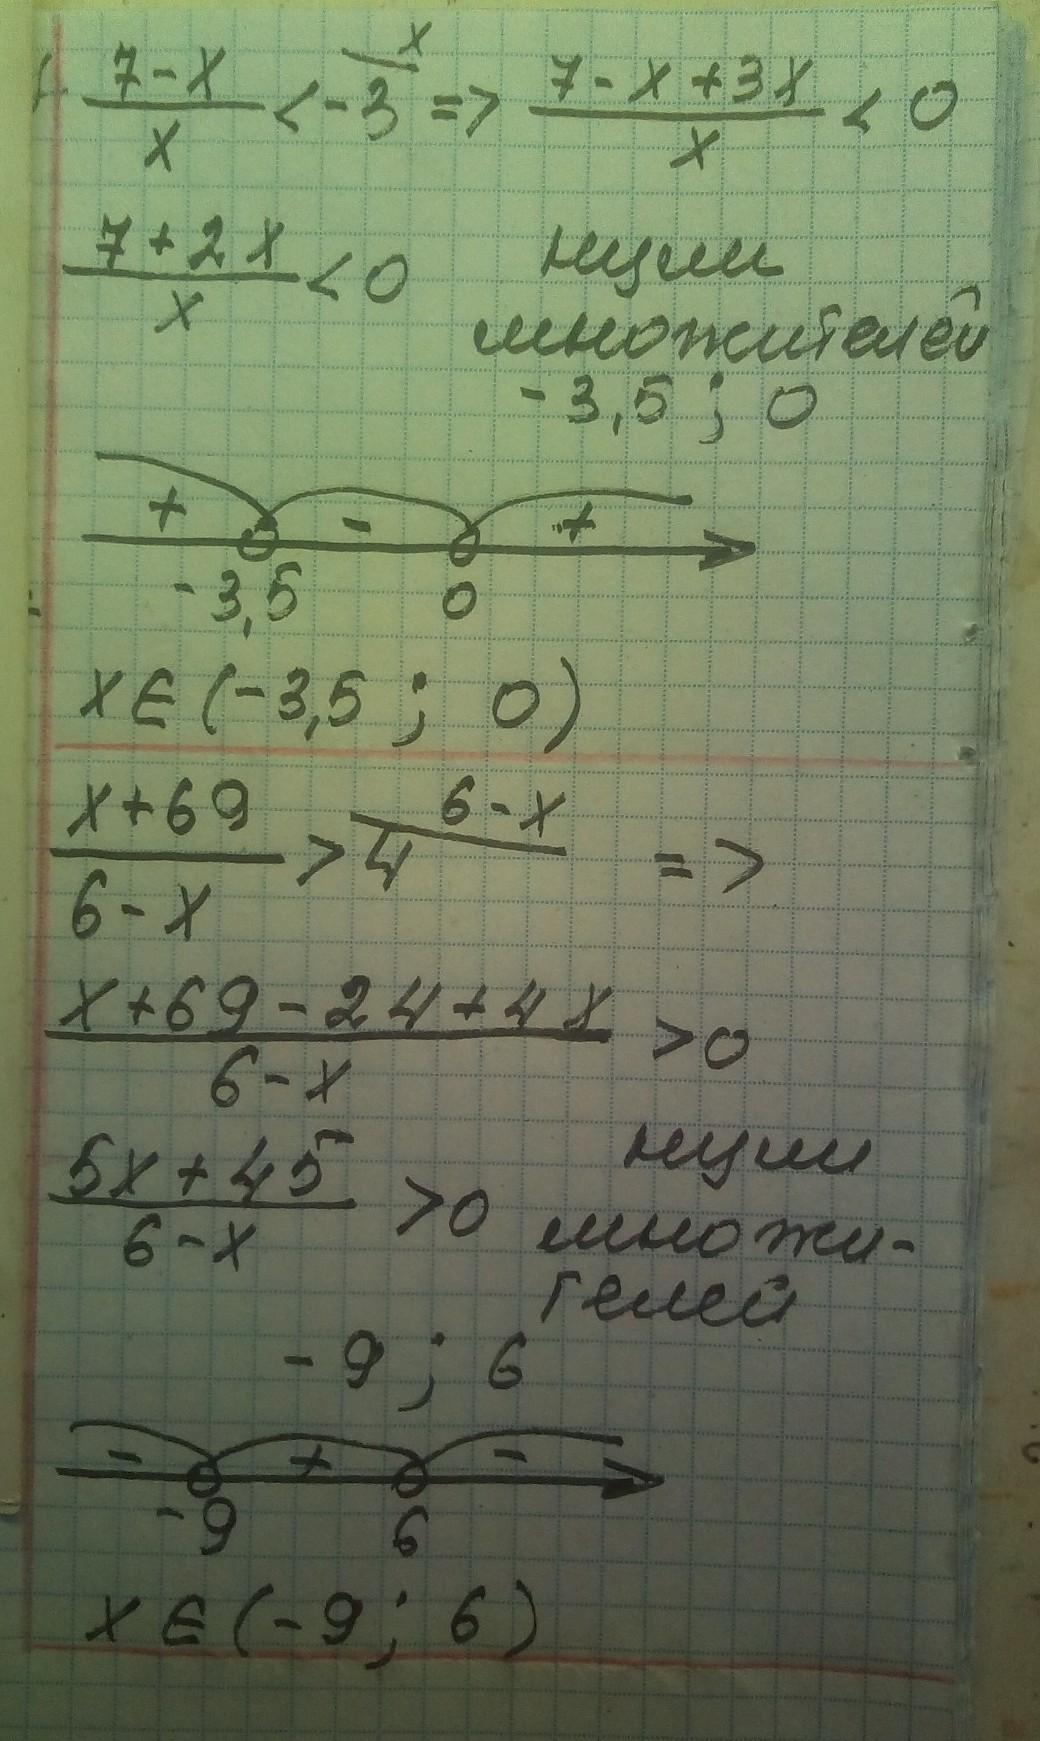 (7-x)/x < -3 x => (7-x+3x)/x < 0
(7+2x)/x < 0 нули
множителей
-3,5 ; 0
+ - +
-3,5 0
x∈(-3,5 ; 0)
(x+69)/(6-x) > 4 6-x =>
(x+69-24+4x)/(6-x) >0
(5x+45)/(6-x) >0 нули
множи-
телей
-9 ; 6
- + -
-9 6
x∈(-9 ; 6)